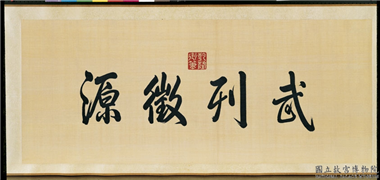 武列徵源
國立故宮博物院